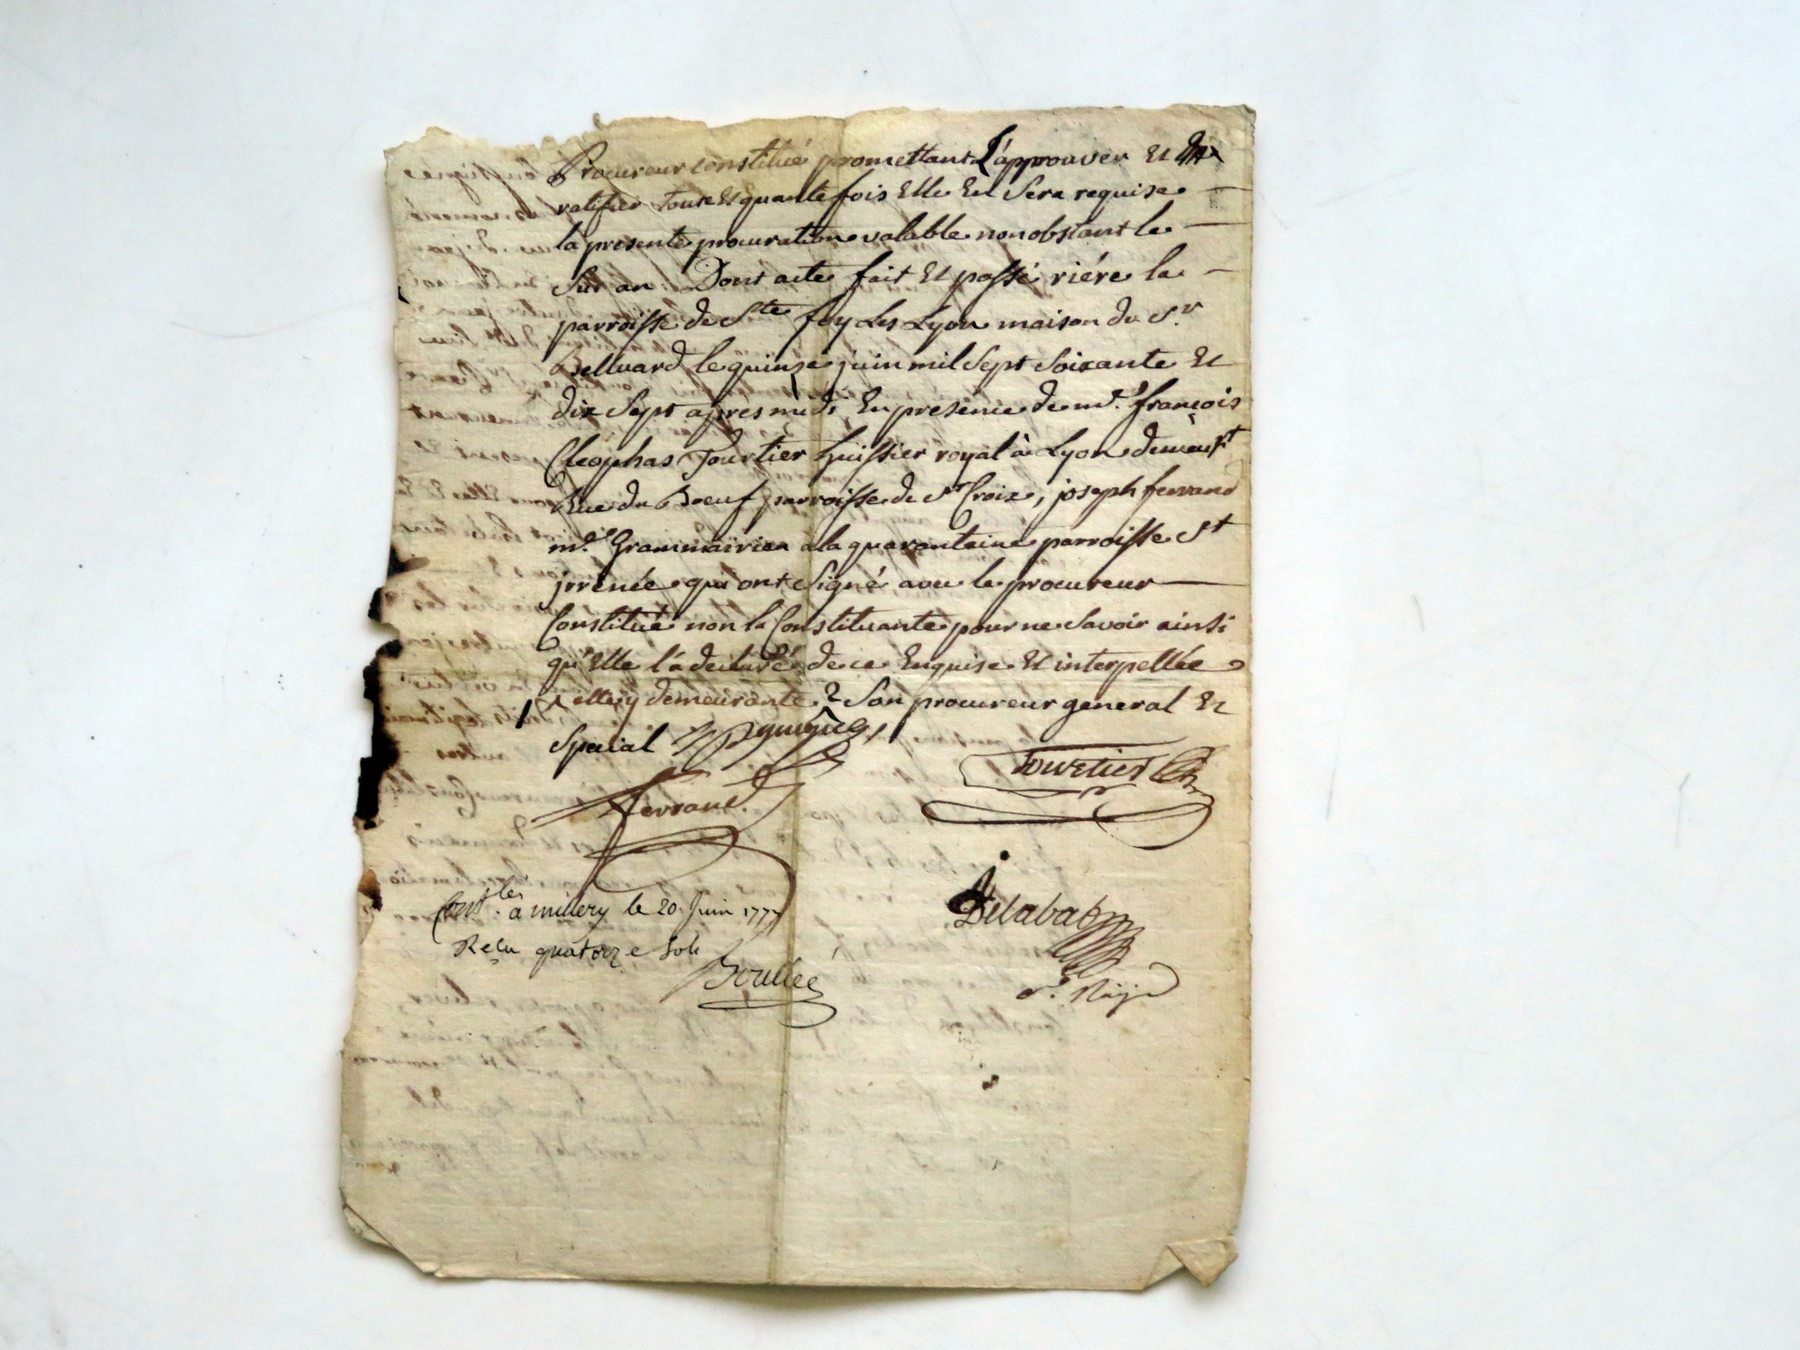 Procureur constitué promettant L'approuver Et
ratifier toute Et quante fois Elle En Sera requise
la presente procuration valable nonobstant le
Sur an. Dont acte fait Et passé riére la
parroisse de Ste foy Les Lyon maison du Sr.
Belluard le quinze juin mil Sept Soixante Et
dix Sept apres midi En presence de mr. françois
Cleophas Tourtier huissier royal à Lyon demeurt
Rue du Boeuf parroisse de Ste Croix, joseph ferrand
md. Grammairien a la quarantaine parroisse St
jrrenée qui ont Signé avec le procureur
Constitué non la Constituante pour ne Savoir ainsi
qu'Elle l'a declaré de ce Enquise Et interpellée
elle y demeurante 2 Son procureur general Et
Special
Tourtier
ferrand.
Contlé. à millery le 20. Juin 1777
Delabat
Reçu quatorze Sols
Boullée